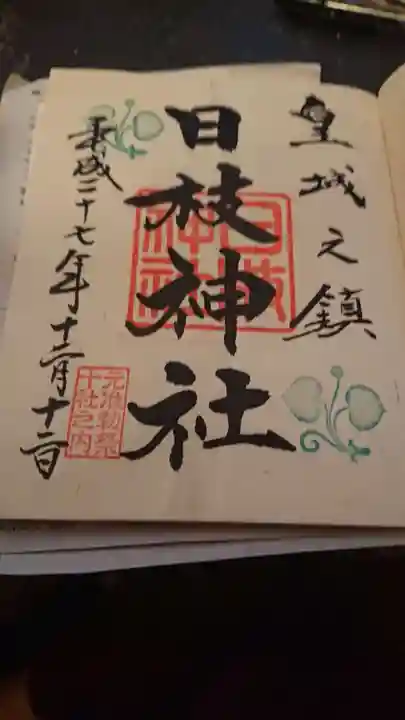 皇城之鎮
日枝神社
日枝
神社
平成二十七年十二月十二日
元准勅祭
十社之内